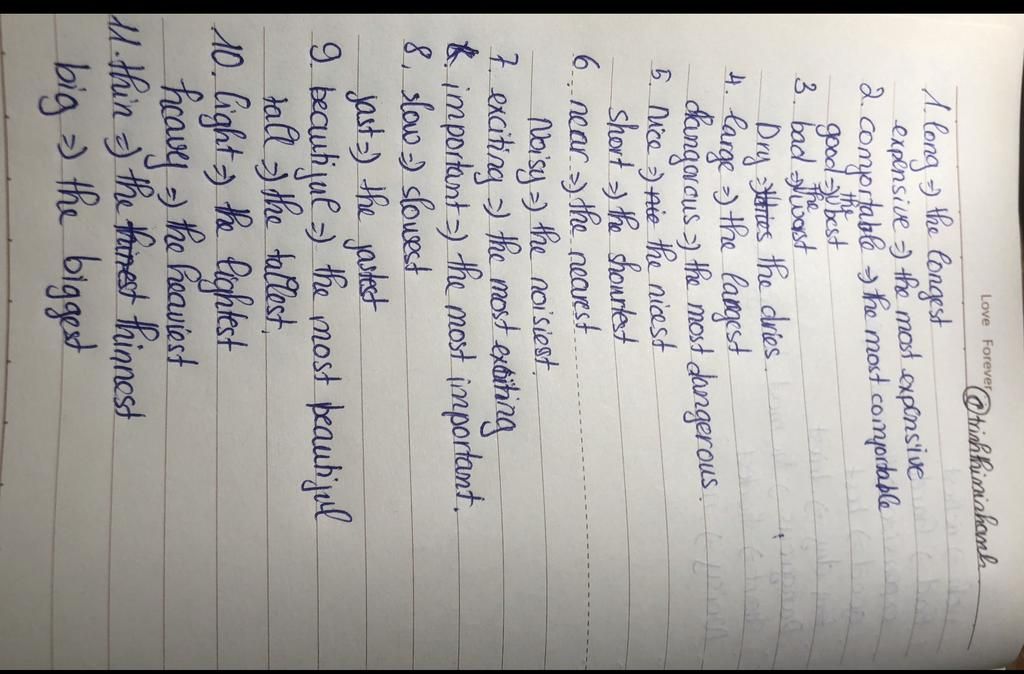 Love Forever
1. long => the longest
expensive => the most expensive
2. comfortable => the most comfortable
good => the best
3. bad => the worst
Dry => the dries.
4. large => the largest
dangerous => the most dangerous.
5. Nice => the nicest
short => the shortest
6. near => the nearest
Noisy => the noisiest.
7. exciting => the most exciting
important => the most important.
8. slow => slowest
fast => the fastest
9. beautiful => the most beautiful
tall => the tallest.
10. light => the lightest
heavy => the heaviest
11. thin => the thinest thinnest
big => the biggest